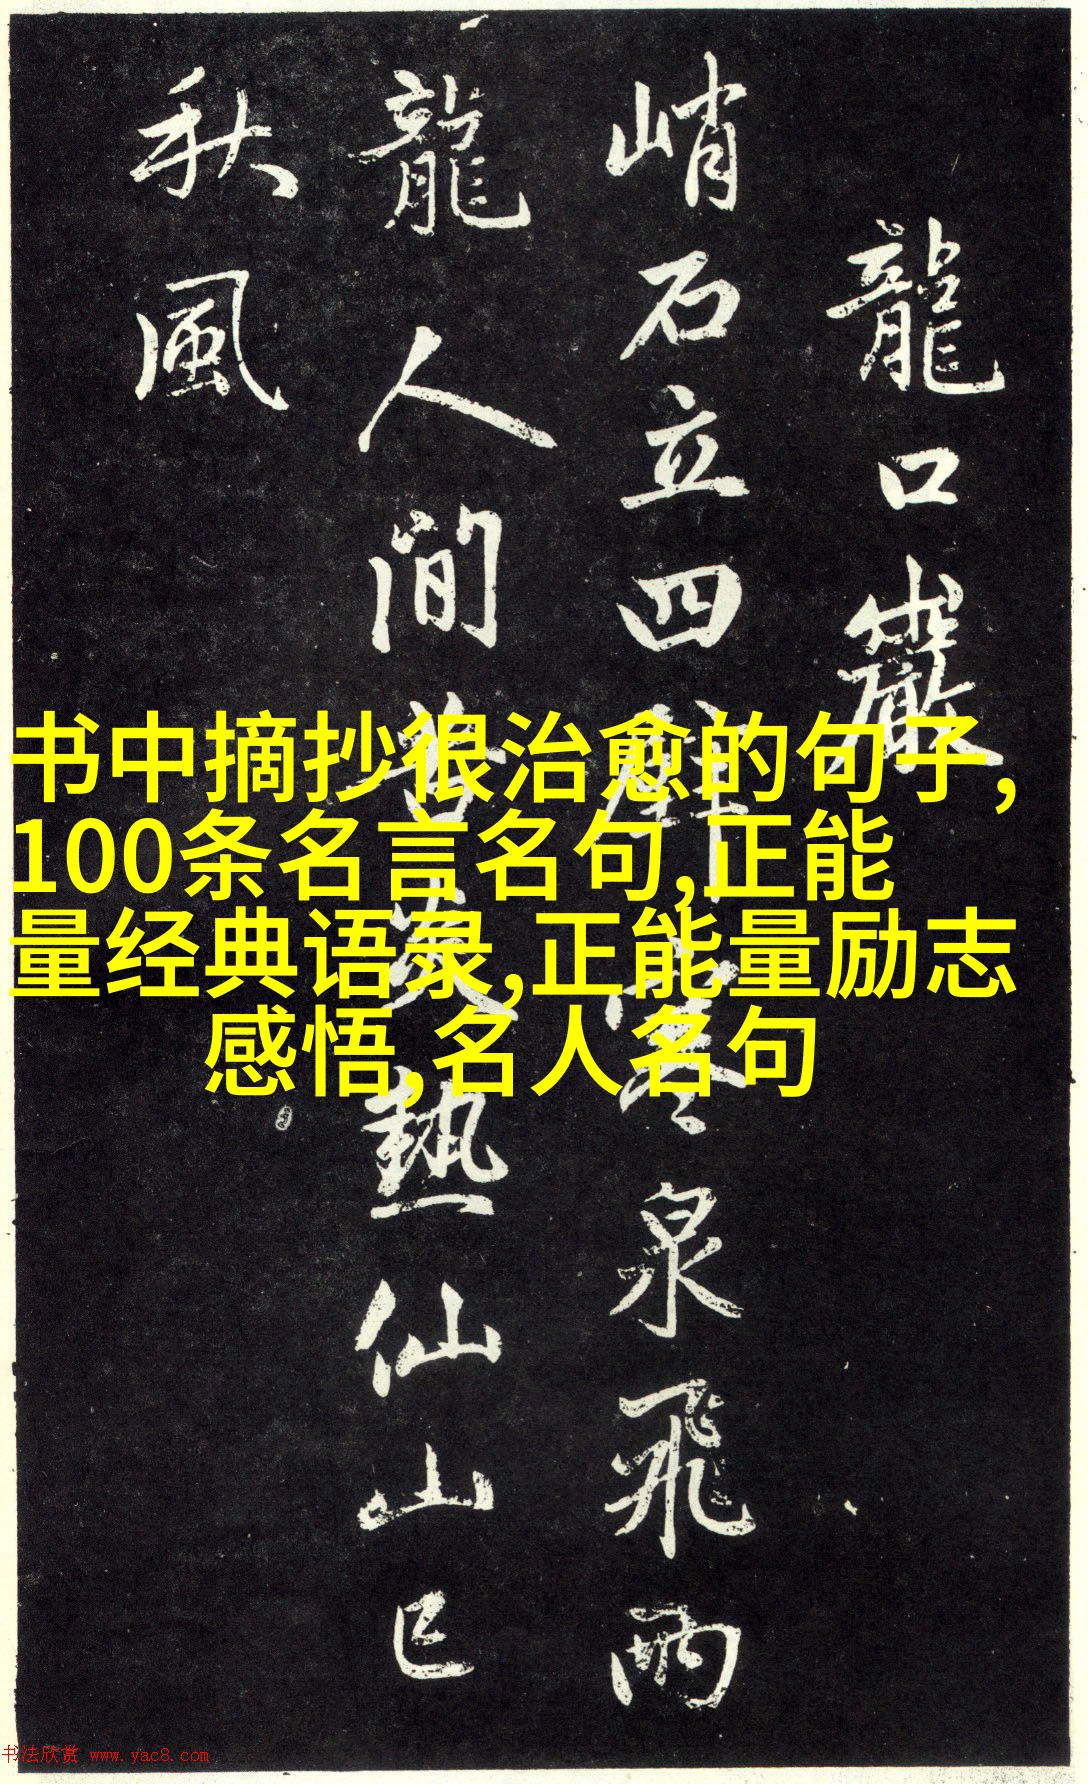 龍口巖
峭石立四壁寒泉飛兩
龍人間苦炎熱仙山已
秋風
书中摘抄很治愈的句子,
100条名言名句,正能
量经典语录,正能量励志
感悟,名人名句
书法欣赏 www.yac8.com